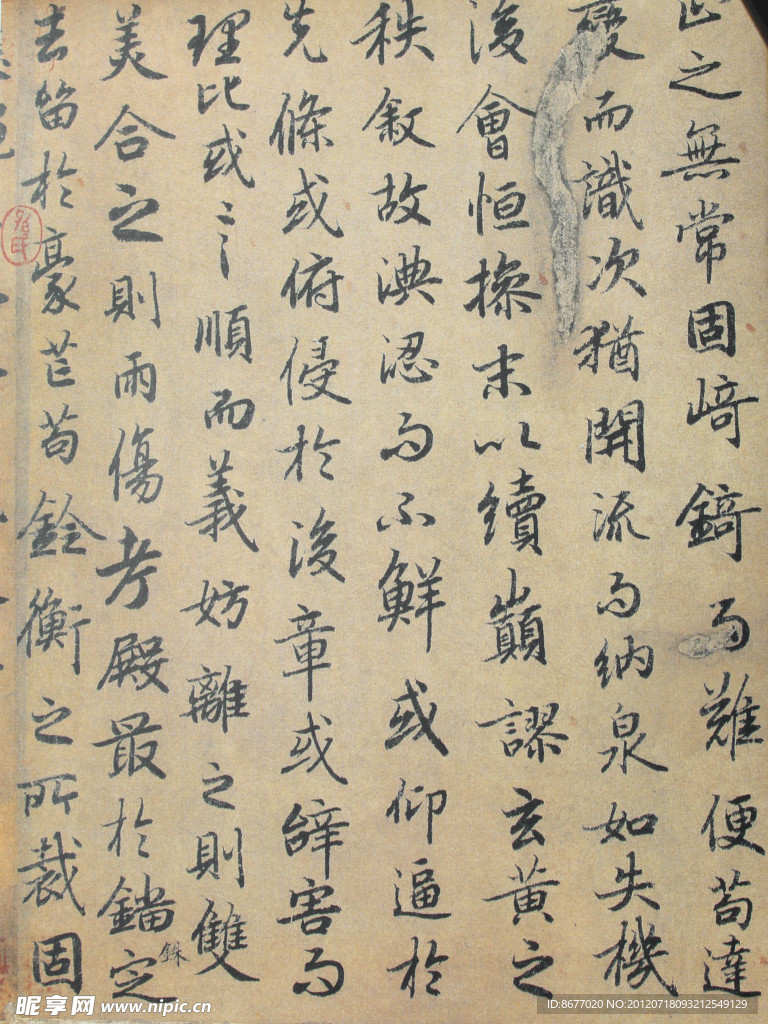 止之無常固崎錡而難便苟達
變而識次猶開流而納泉如失機
後會恒操末以續巔謬玄黃之
秩敘故淟涊而不鮮或仰逼於
先條或俯侵於後章或辭害而
理比或言順而義妨離之則雙
美合之則兩傷考殿最於錙銖定
去留於豪芒苟銓衡之所裁固
昵享网 www.nipic.cn
ID:8677020 NO:20120718093212549129